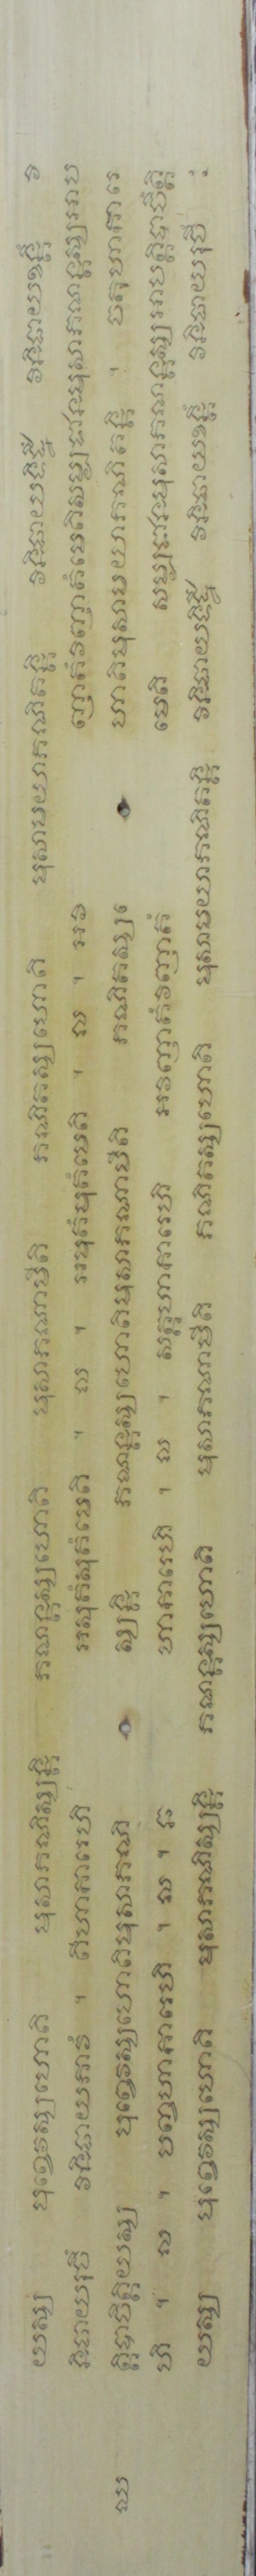 យស្ស បុព្វេវស្សហោតិ មុសាភណិស្សន្តិ ភណន្តស្សហោតិ មុសាភណាមីតិ ភណិតស្សហោតិ មុសាមយាភណិតន្តិ វិនិធាយទិដ្ឋឹ វិនិធាយខន្តឹ វិ
និធាយរុចឹ វិនិធាយភាវំ ។ តីហាការេហិ អសុតំសុតំមេតិ ។ ល ។ អមុតំមុតំមេតិ ។ ល ។ អវិ ញាតំវិញាតំមេតិសម្បជានមុសាភណន្តស្សអាប
ឈ ត្តិបាចិត្តិយស្ស បុព្វេវស្សហោតិមុសាភណិ ស្សន្តិ ភណន្តស្សហោតិមុសាភណាមីតិ ភណិតស្សហោតិមុសាមយាភណិតន្តិ ។ ចតុហាការេ
ហិ ។ ល ។ បញ្ចហាការេហិ ។ ល ។ ឆ ហាការេហិ ។ ល ។ សត្តហាការេហិ អវិញាតំវិញាតំ មេតិ សម្បជានមុសាភណន្តស្សអាបត្តិបាចិត្តិ
យស្ស បុព្វេវស្សហោតិ មុសាភណិស្សន្តិ ភណន្តស្សហោតិ មុសាភណាមីតិ ភណិតស្សហោតិ មុសាមយាភណិតន្តិ វិនិធាយទិដ្ឋឹ វិនិធាយខន្តឹ វិនិធាយរុចឹ